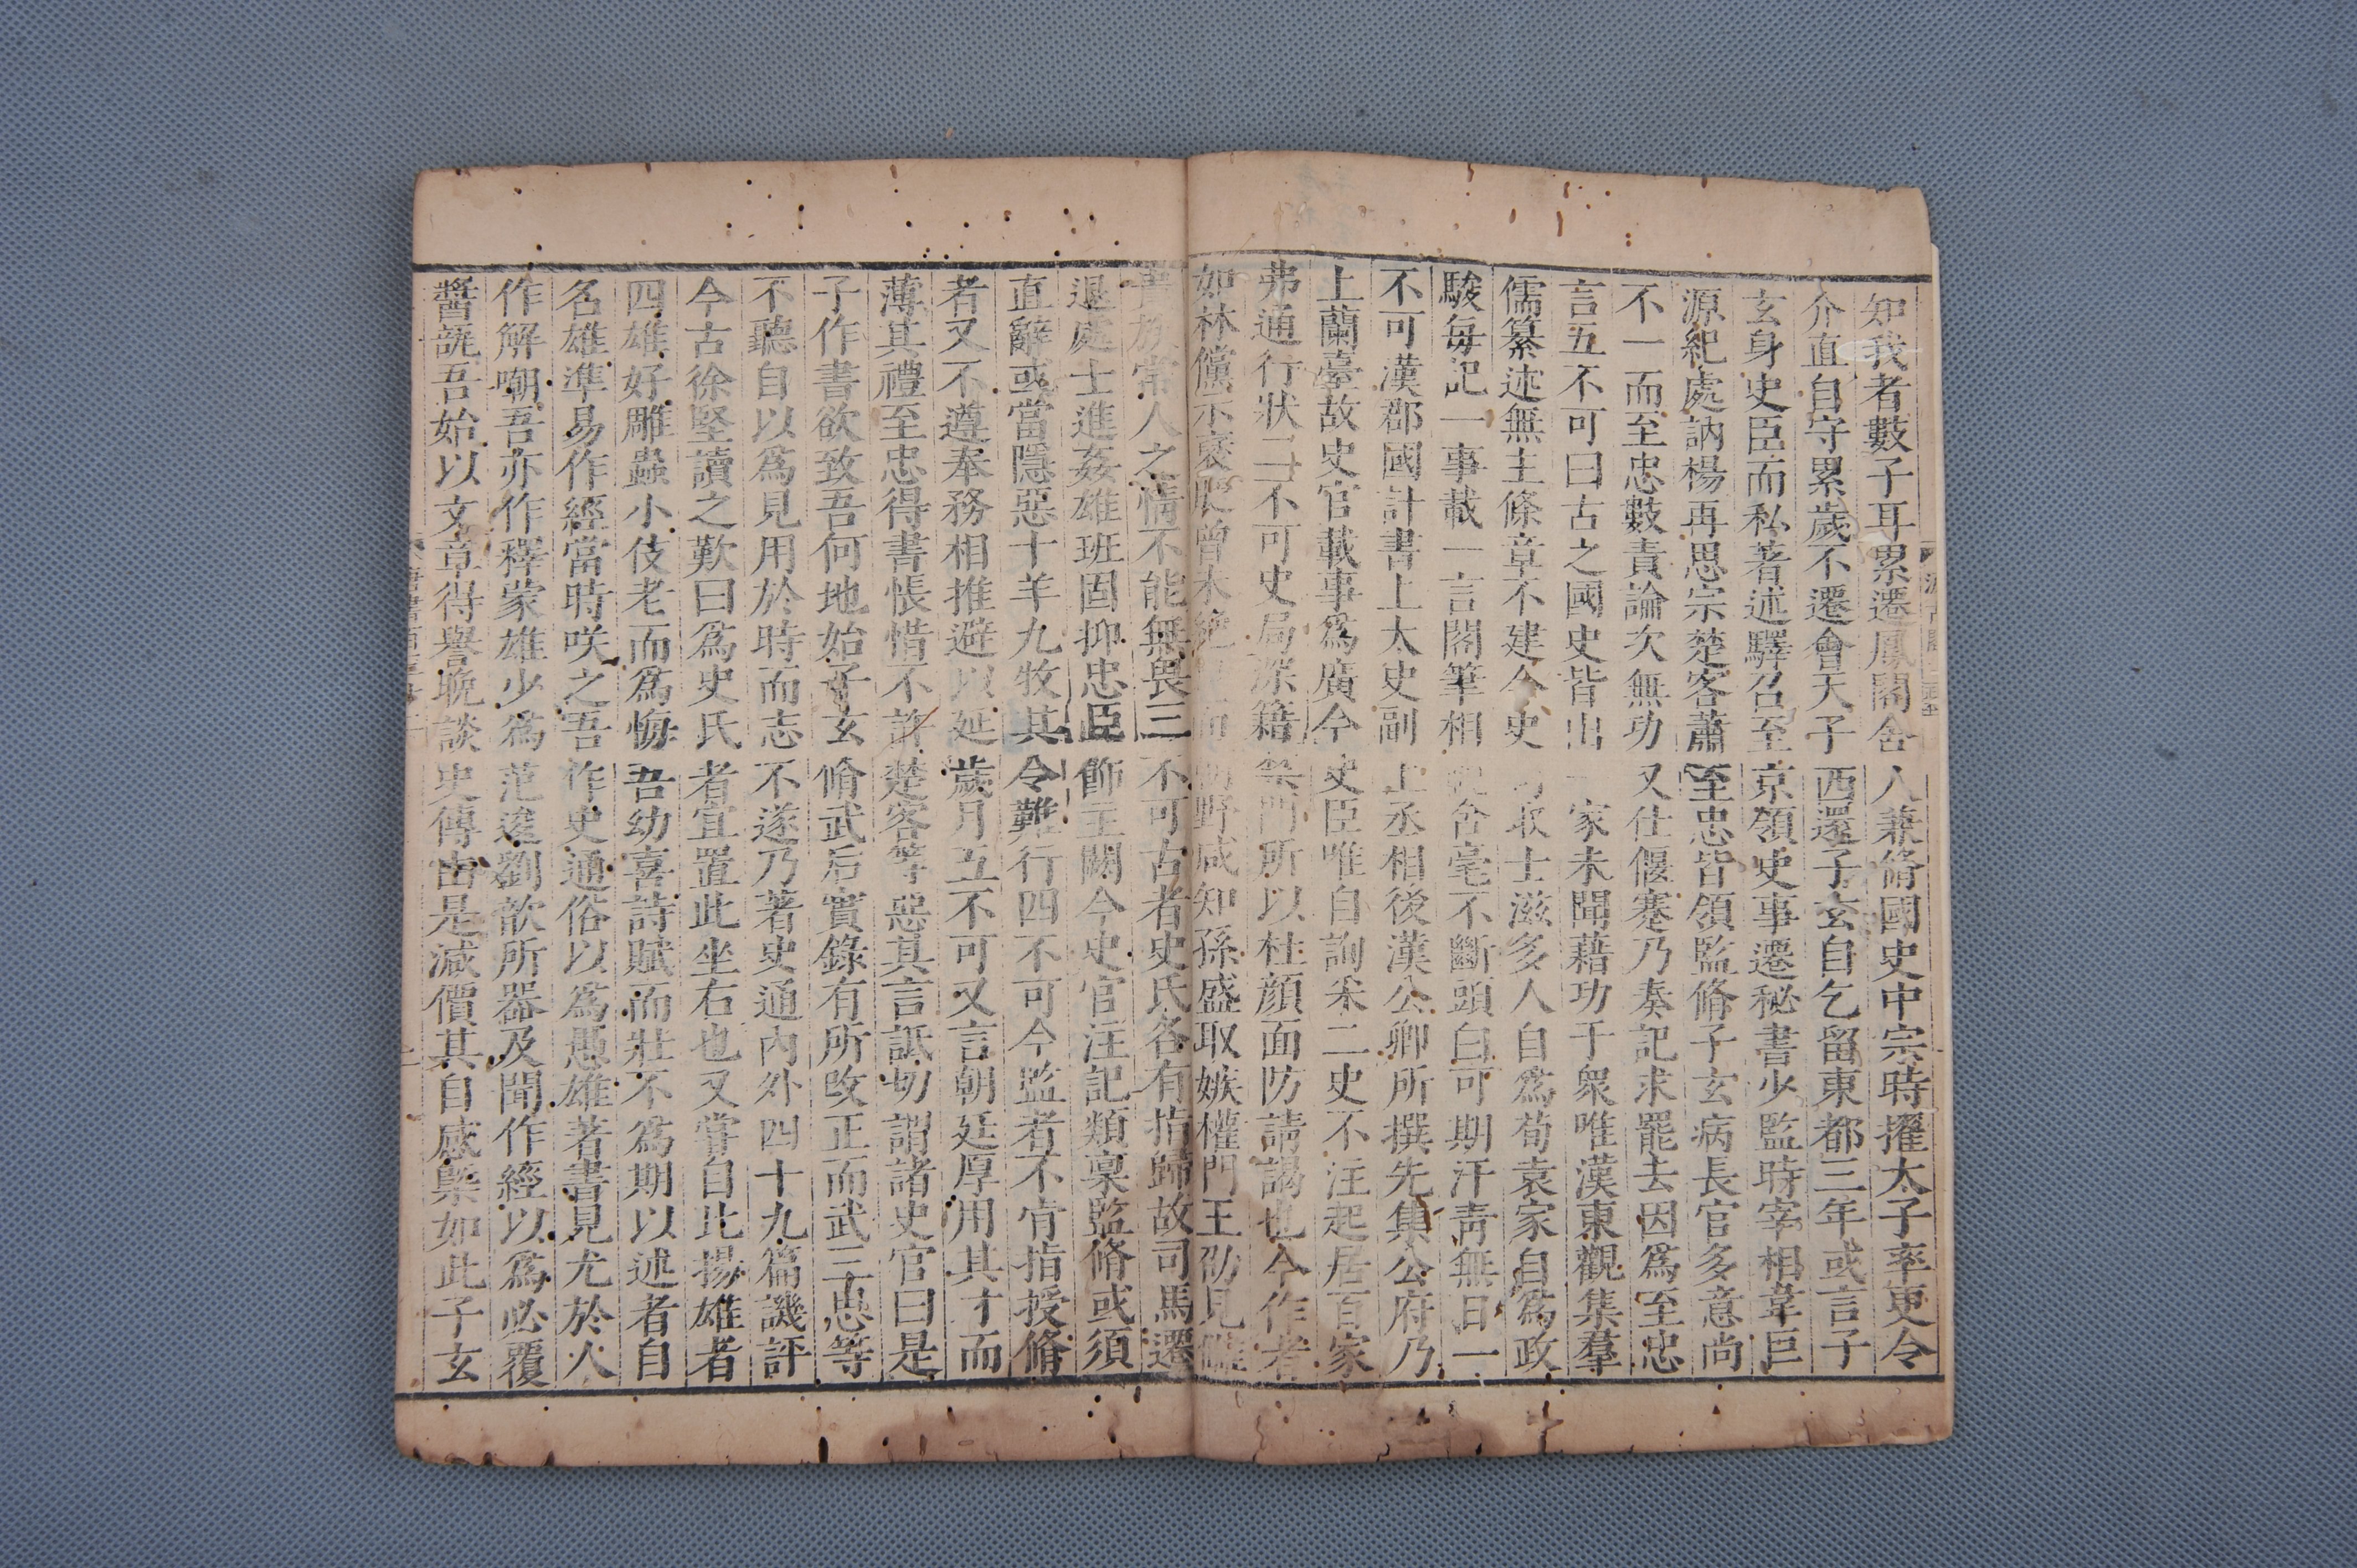 知我者數子耳累遷鳳閣舍人兼脩國史中宗時擢太子率更令
介直自守累歲不遷會天子西還子玄自乞留東都三年或言子
玄身史臣而私著述驛召至京領史事遷秘書少監時宰相韋巨
源紀處訥楊再思宗楚客蕭至忠皆領監脩子玄病長官多意尚
不一而至忠數責論次無功又仕偃蹇乃奏記求罷去因爲至忠
言五不可曰古之國史皆出一家未聞藉功于衆唯漢東觀集羣
儒纂述無主條章不建今史司取士滋多人自爲荀袁家自爲政
駿每記一事載一言閣筆相視含毫不斷頭白可期汗青無日一
不可漢郡國計書上太史副上丞相後漢公卿所撰先集公府乃
上蘭臺故史官載事爲廣今史臣唯自詢采二史不注起居百家
弗通行狀二不可史局深籍禁門所以杜顏面防請謁也今作者
如林儻示褒貶曾未絶而朝野咸知孫盛取嫉權門王劭見讎
貴族常人之情不能無畏三不可古者史氏各有指歸故司馬遷
退處士進姦雄班固抑忠臣飾主闕今史官注記類稟監脩或須
直辭或當隱惡十羊九牧其令難行四不可今監者不肯指授脩
者又不遵奉務相推避以延歲月五不可又言朝廷厚用其才而
薄其禮至忠得書悵惜不許楚客等惡其言詆切謂諸史官曰是
子作書欲致吾何地始子玄脩武后實錄有所改正而武三思等
不聽自以爲見用於時而志不遂乃著史通內外四十九篇譏評
今古徐堅讀之歎曰爲史氏者宜置此坐右也又嘗自比揚雄者
四雄好雕蟲小伎老而爲悔吾幼喜詩賦而壯不爲期以述者自
名雄準易作經當時咲之吾作史通俗以爲愚雄著書見尤於人
作解嘲吾亦作釋蒙雄少爲范逡劉歆所器及聞作經以爲必覆
醬瓿吾始以文章得譽晚談史傳由是減價其自感槩如此子玄